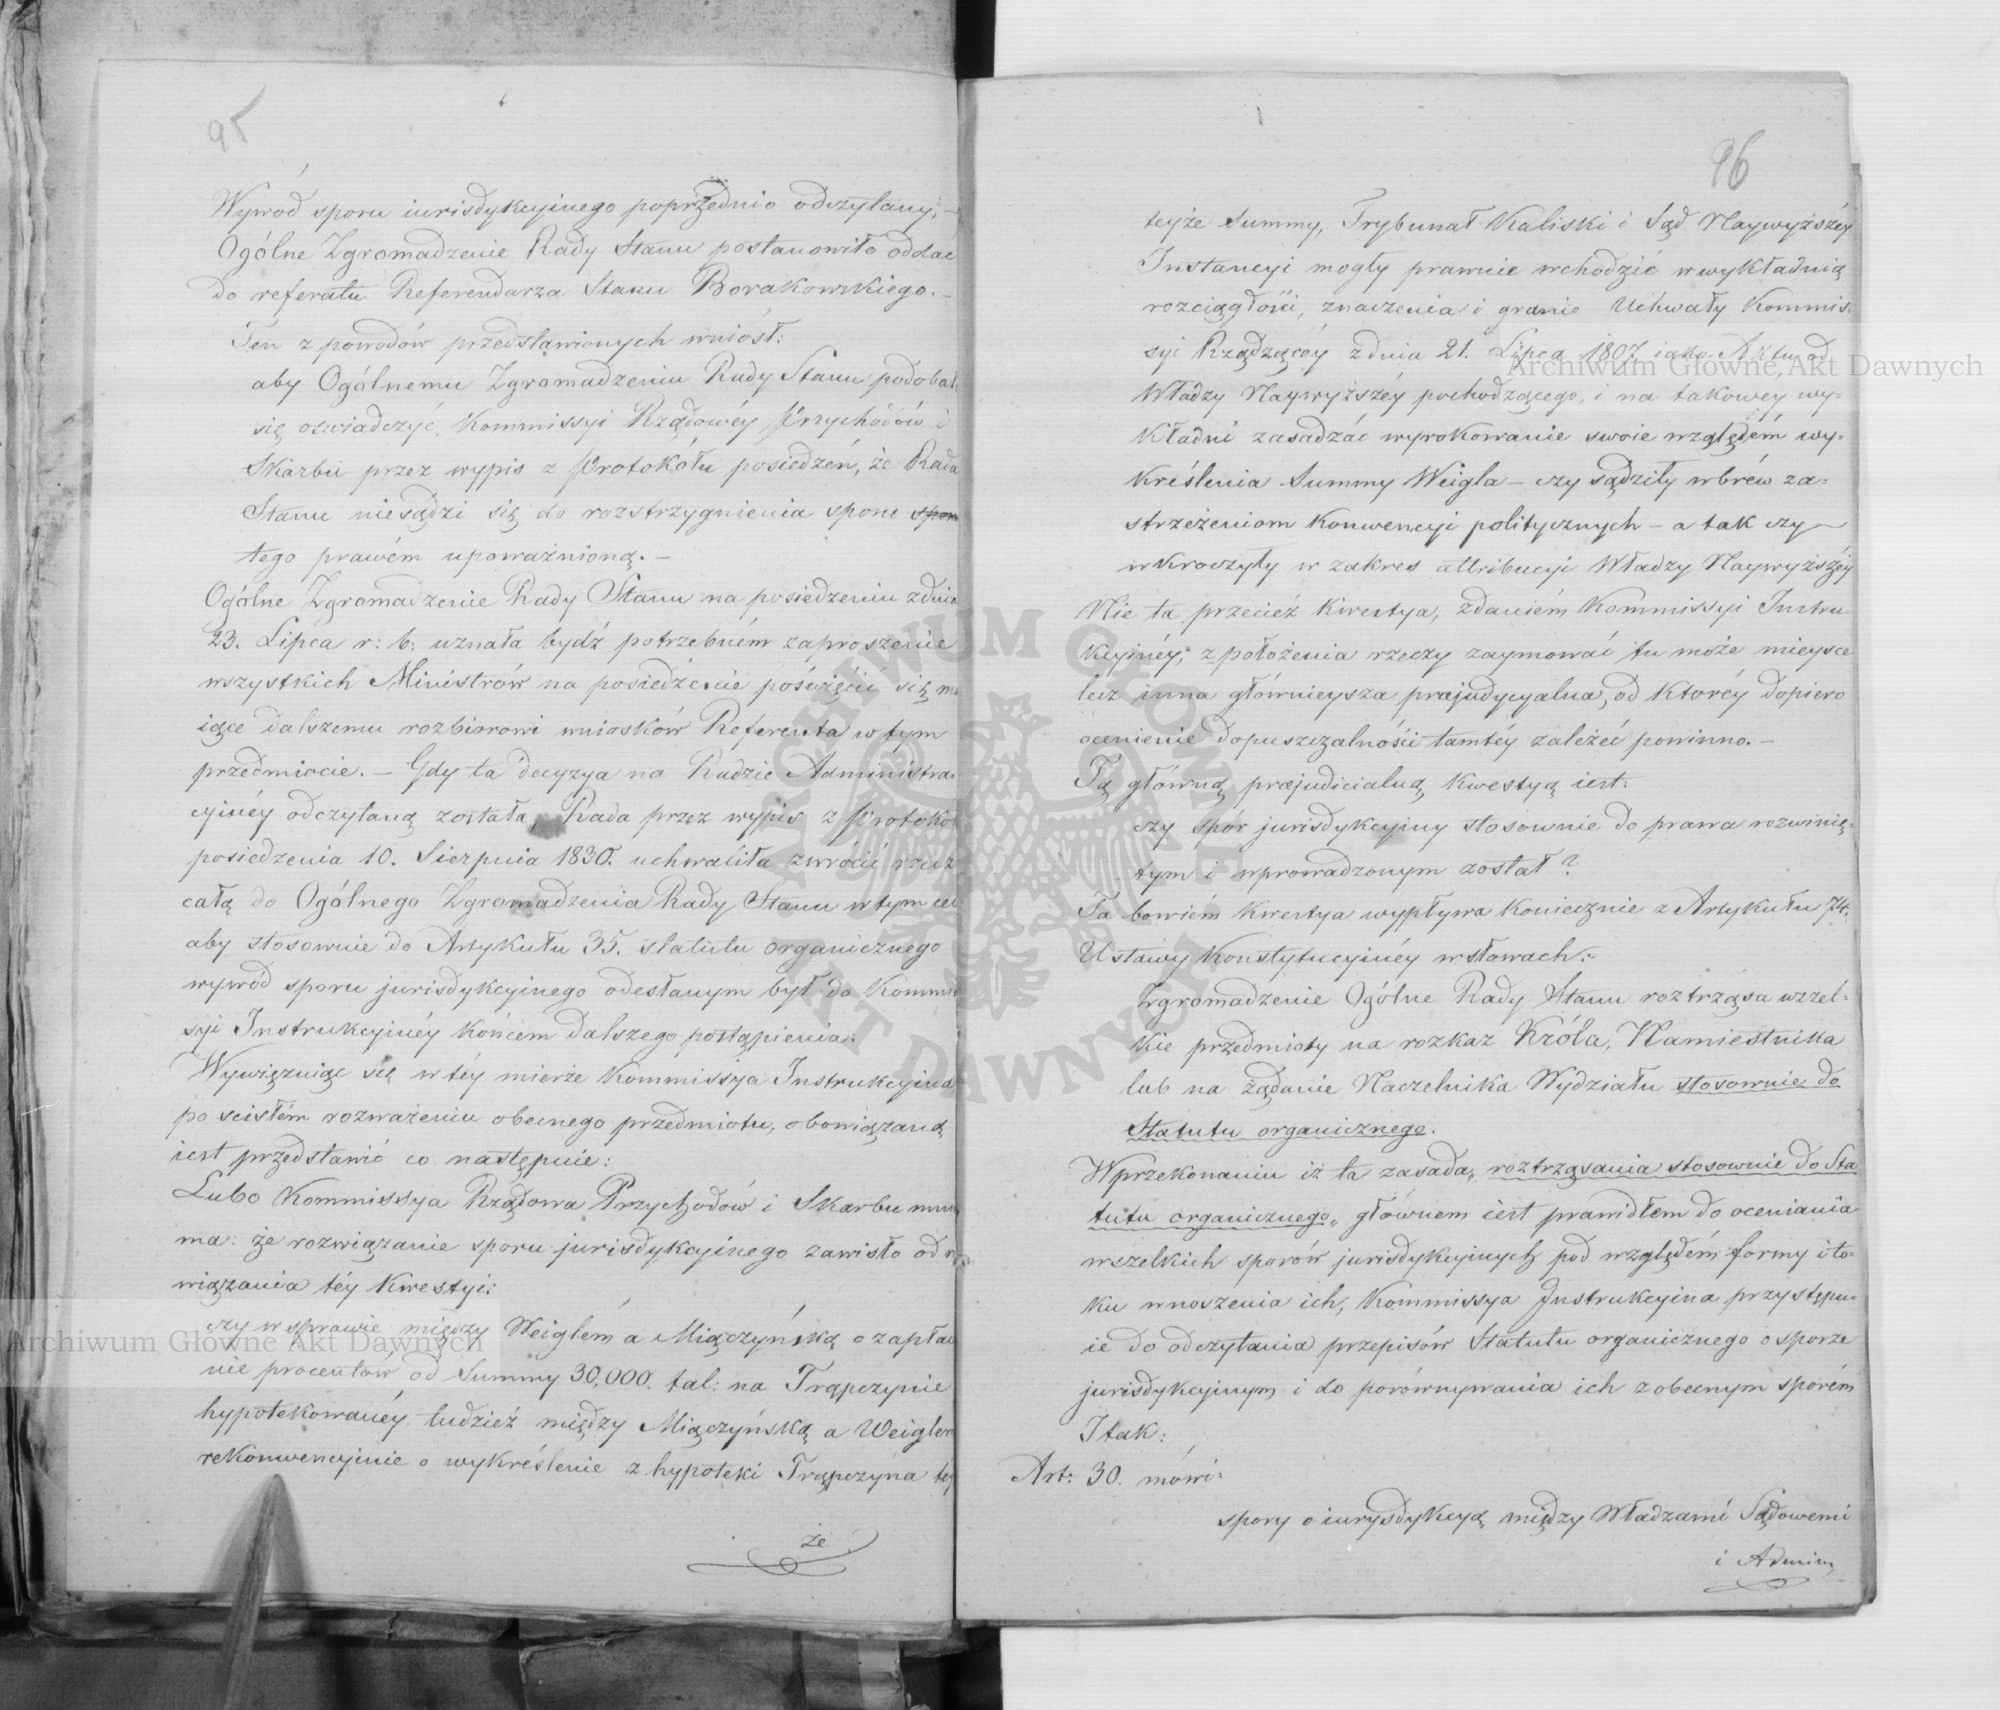 95
Wywód sporu iurisdykcyinego poprzednio odczytany,
Ogólne Zgromadzenie Rady Stanu postanowiło oddać
do referatu Referendarza Stanu Borakowskiego.—
Ten z powodów przedstawionych wniósł:
aby Ogólnemu Zgromadzeniu Rady Stanu podobał
się oswiadczyć Kommissyi Rządowéy Przychodów i
Skarbu przez wypis z Protokółu posiedzeń, że Rada
Stanu niesądzi się do rozstrzygnienia sporu spor
tego prawém upoważnioną.—
Ogólne Zgromadzenie Rady Stanu na posiedzeniu z dnia
23. Lipca r: b: uznała bydź potrzebném zaproszenie
wszystkich Ministrów na posiedzenie poświęcić się ma
iące dalszemu rozbiorowi wniosków Referenta w tym
przedmiocie.— Gdy ta decyzya na Radzie Administra-
cyinéy odczytaną została, Rada przez wypis z Protokół
posiedzenia 10. Sierpnia 1830. uchwaliła zwrócić rzecz
całą do Ogólnego Zgromadzenia Rady Stanu w tym cel
aby stosownie do Artykułu 35. statutu organicznego
wywód sporu jurisdykcyinego odesłanym był do Kommis
syi Instrukcyinéy końcem dalszego postąpienia.
Wywięzuiąc się w téy mierze Kommissya Instrukcyina
po scisłém rozważeniu obecnego przedmiotu, obowiązaną
iest przedstawić co następuie:
Lubo Kommissya Rządowa Przychodów i Skarbu mnie
ma: że rozwiązanie sporu jurisdykcyinego zawisło od roz
wiązania téy Kwestyi:
czy w sprawie między Weiglém a Miączyńską o zapłac
nie procentów od Summy 30,000. tal: na Trąpczynie
hypotekowanéy, tudzież między Miączyńską a Weiglem
rekonwencyinie o wykréslenie z hypoteki Trąpczyna tey
że
96
teyże Summy, Trybunał Kaliski i Sąd Naywyższéy
Instancyi mogły prawnie wchodzić w wykładnią
rozciągłości, znaczenia i granic Uchwały Kommis-
syi Rządzącéy z dnia 21. Lipca 1807. iako Aktu od
Władzy Naywyższéy pochodzącego, i na takowéy wy-
kładni zasadzáć wyrokowanie swoie względém wy-
kréślenia Summy Weigla — czy sądziły wbréw za-
strzeżeniom konwencyi politycznych — a tak czy
wkroczyły w zakres attribucyi Władzy Naywyższéy
Nie ta przecież kwestya, zdaniém Kommissyi Instru
kcyinéy, z położenia rzeczy zaymować tu może mieysce
lecz inna główniejsza prajudycyalna, od któréy dopiero
ocenienie dopuszczalności tamtéy zależéć powinno.—
Tą główną præjudicialną kwestyą iest:
czy spór jurisdykcyiny stosownie do prawa rozwinię-
tym i wprowadzonym został?
Ta bowiém kwestya wypływa koniecznie z Artykułu 74.
Ustawy Konstytucyinéy w słowach:
Zgromadzenie Ogólne Rady Stanu roztrząsa wszel-
kie przedmioty na rozkaz Króla, Namiestnika
lub na żądanie Naczelnika Wydziału stosownie do
Statutu organicznego.
W przekonaniu iż ta zasada „roztrząsania stosownie do Sta
tutu organicznego„ główném iest prawidłem do oceniania
wszelkich sporów jurisdykcyinych pod względém formy i to-
ku wnoszenia ich, Kommissya Instrukcyina przystępu-
ie do odczytania przepisów Statutu organicznego o sporze
jurisdykcyinym i do porównywania ich z obecnym sporém
I tak:
Art: 30. mówi:
spory o iurysdykcyą między Władzami Sądowemi
i Admin
Archiwum Główne Akt Dawnych
Archiwum Główne Akt Dawnych
ARCHIWUM GŁÓWNE AKT DAWNYCH